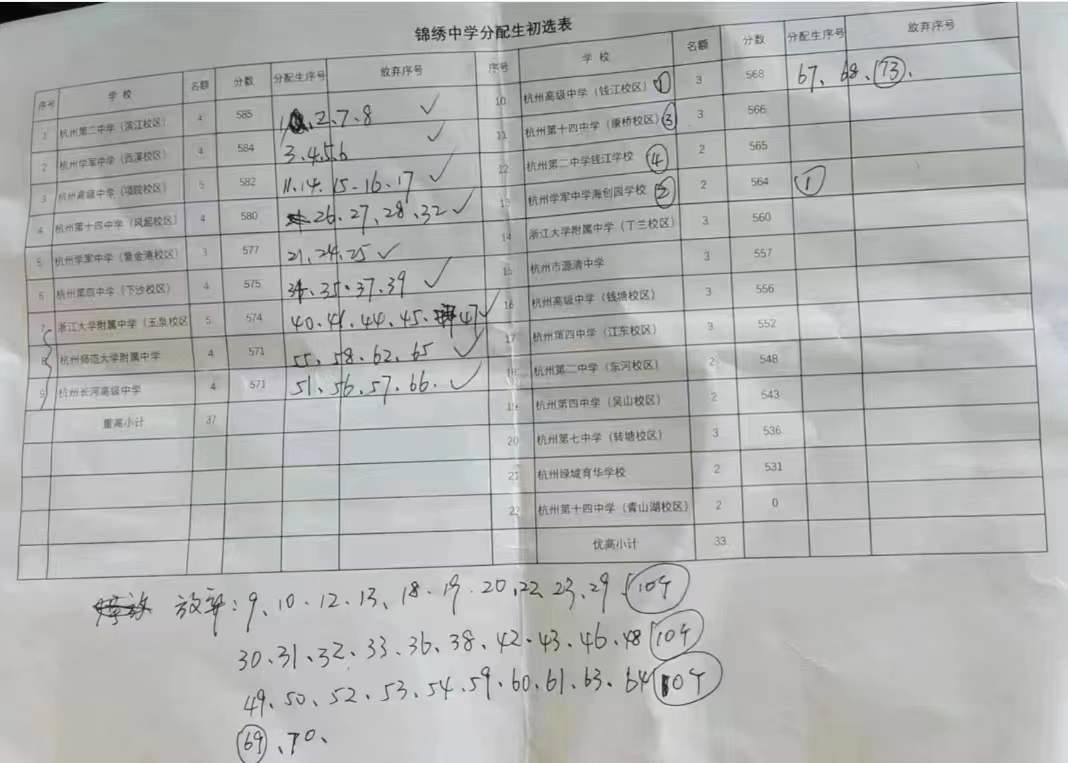 锦绣中学分配生初选表
序号 学校 名额 分数 分配生序号 放弃序号
1 杭州第二中学（滨江校区） 4 585 1、2、7、8 ✓
2 杭州学军中学（西溪校区） 4 584 3、4、5、6 ✓
3 杭州高级中学（贡院校区） 5 582 11、14、15、16、17 ✓
4 杭州第十四中学（凤起校区） 4 580 26、27、28、32 ✓
5 杭州学军中学（紫金港校区） 3 577 21、24、25 ✓
6 杭州第四中学（下沙校区） 4 575 34、35、37、39 ✓
7 浙江大学附属中学（玉泉校区 5 574 40、41、44、45、47 ✓
8 杭州师范大学附属中学 4 571 55、58、62、65 ✓
9 杭州长河高级中学 4 571 51、56、57、66、 ✓
重高小计 37
序号 学校 名额 分数 分配生序号 放弃序号
10 杭州高级中学（钱江校区）① 3 568 67、68、73、
11 杭州第十四中学（康桥校区）③ 3 566
12 杭州第二中学钱江学校 ④ 2 565
13 杭州学军中学海创园学校 ② 2 564 ①
14 浙江大学附属中学（丁兰校区） 3 560
15 杭州市源清中学 3 557
16 杭州高级中学（钱塘校区） 3 556
17 杭州第四中学（江东校区） 3 552
18 杭州第二中学（东河校区） 2 548
19 杭州第四中学（吴山校区） 2 543
20 杭州第七中学（转塘校区） 3 536
21 杭州绿城育华学校 2 531
22 杭州第十四中学（青山湖校区） 2 0
优高小计 33
放弃：9、10、12、13、18、19、20、22、23、29 10个
30、31、32、33、36、38、42、43、46、48 10个
49、50、52、53、54、59、60、61、63、64 10个
69、70、